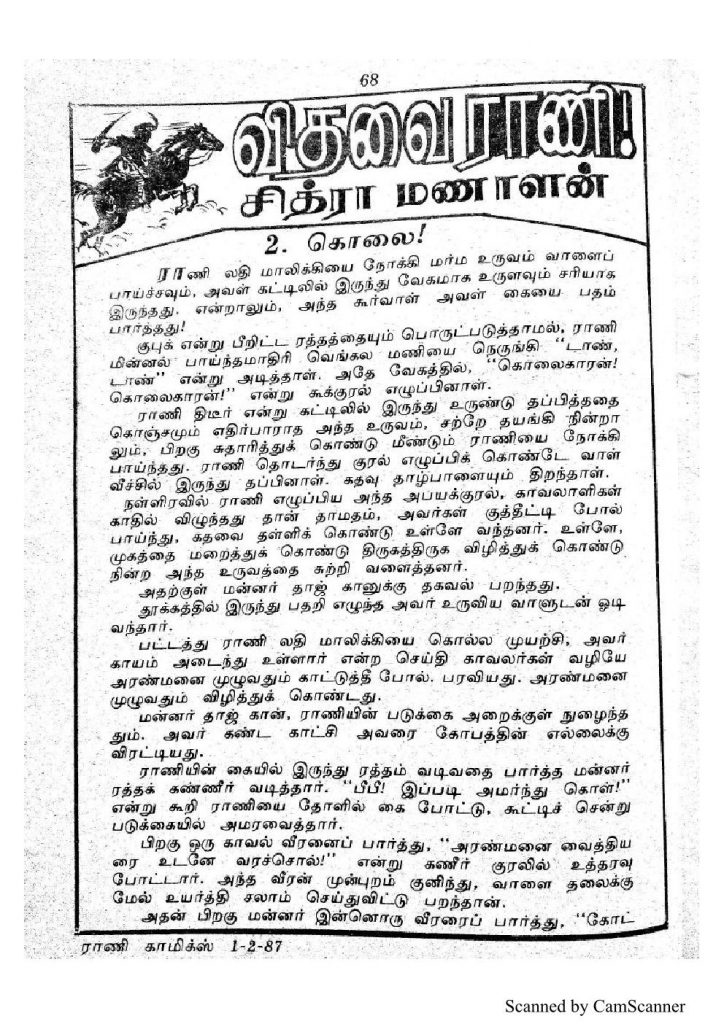 68
விதவை ராணி!
சித்ரா மணாளன்
2. கொலை!
ராணி லதி மாலிக்கியை நோக்கி மர்ம உருவம் வாளைப்
பாய்ச்சவும், அவள் கட்டிலில் இருந்து வேகமாக உருளவும் சரியாக
இருந்தது. என்றாலும், அந்த கூர்வாள் அவள் கையை பதம்
பார்த்தது!
குபுக் என்று பீறிட்ட ரத்தத்தையும் பொருட்படுத்தாமல், ராணி
மின்னல் பாய்ந்தமாதிரி வெங்கல மணியை நெருங்கி "டாண்,
டாண்" என்று அடித்தாள். அதே வேகத்தில், "கொலைகாரன்!
கொலைகாரன்!" என்று கூக்குரல் எழுப்பினாள்.
ராணி திடீர் என்று கட்டிலில் இருந்து உருண்டு தப்பித்ததை
கொஞ்சமும் எதிர்பாராத அந்த உருவம், சற்றே தயங்கி நின்றா
லும், பிறகு சுதாரித்துக் கொண்டு மீண்டும் ராணியை நோக்கி
பாய்ந்தது. ராணி தொடர்ந்து குரல் எழுப்பிக் கொண்டே வாள்
வீச்சில் இருந்து தப்பினாள். கதவு தாழ்பாளையும் திறந்தாள்.
நள்ளிரவில் ராணி எழுப்பிய அந்த அபயக்குரல், காவலாளிகள்
காதில் விழுந்தது தான் தாமதம், அவர்கள் குத்தீட்டி போல்
பாய்ந்து, கதவை தள்ளிக் கொண்டு உள்ளே வந்தனர். உள்ளே,
முகத்தை மறைத்துக் கொண்டு திருகத்திருக விழித்துக் கொண்டு
நின்ற அந்த உருவத்தை சுற்றி வளைத்தனர்.
அதற்குள் மன்னர் தாஜ் கானுக்கு தகவல் பறந்தது.
தூக்கத்தில் இருந்து பதறி எழுந்த அவர் உருவிய வாளுடன் ஓடி
வந்தார்.
பட்டத்து ராணி லதி மாலிக்கியை கொல்ல முயற்சி; அவர்
காயம் அடைந்து உள்ளார் என்ற செய்தி காவலர்கள் வழியே
அரண்மனை முழுவதும் காட்டுத்தீ போல். பரவியது. அரண்மனை
முழுவதும் விழித்துக் கொண்டது.
மன்னர் தாஜ் கான், ராணியின் படுக்கை அறைக்குள் நுழைந்த
தும். அவர் கண்ட காட்சி அவரை கோபத்தின் எல்லைக்கு
விரட்டியது.
ராணியின் கையில் இருந்து ரத்தம் வடிவதை பார்த்த மன்னர்
ரத்தக் கண்ணீர் வடித்தார். "பீபீ! இப்படி அமர்ந்து கொள்!"
என்று கூறி ராணியை தோளில் கை போட்டு, கூட்டிச் சென்று
படுக்கையில் அமரவைத்தார்.
பிறகு ஒரு காவல் வீரனைப் பார்த்து, "அரண்மனை வைத்திய
ரை உடனே வரச்சொல்!" என்று கணீர் குரலில் உத்தரவு
போட்டார். அந்த வீரன் முன்புறம் குனிந்து, வாளை தலைக்கு
மேல் உயர்த்தி சலாம் செய்துவிட்டு பறந்தான்.
அதன் பிறகு மன்னர் இன்னொரு வீரரைப் பார்த்து, "கோட்
ராணி காமிக்ஸ் 1-2-87
Scanned by CamScanner